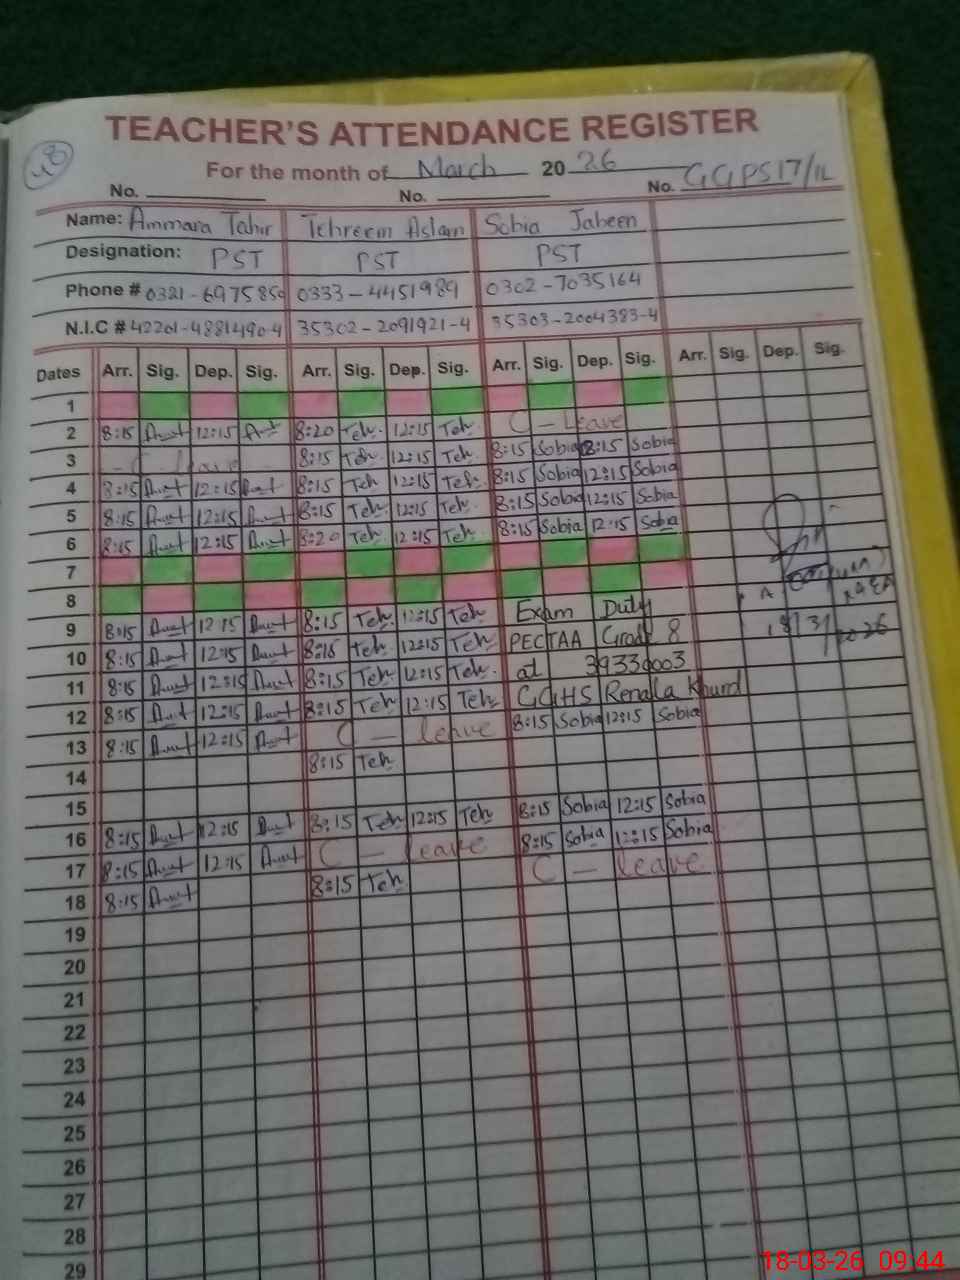 TEACHER'S ATTENDANCE REGISTER
For the month of March 2026
No. No. No. GGPS 17/1L
Name: Ammara Tahir Tehreem Aslam Sobia Jabeen
Designation: PST PST PST
Phone # 0321-6975850 0333-4451989 0302-7035164
N.I.C # 42201-4881490-4 35302-2091921-4 35303-2004383-4
Dates Arr. Sig. Dep. Sig. Arr. Sig. Dep. Sig. Arr. Sig. Dep. Sig. Arr. Sig. Dep. Sig.
1
2 8:15 12:15 8:20 Teh. 12:15 Teh. C - Leave
3 - C - leave 8:15 Teh. 12:15 Teh. 8:15 Sobia 8:15 Sobia
4 8:15 12:15 8:15 Teh 12:15 Teh. 8:15 Sobia 12:15 Sobia
5 8:15 12:15 8:15 Teh. 12:15 Teh. 8:15 Sobia 12:15 Sobia
6 8:15 12:15 8:20 Teh. 12:15 Teh. 8:15 Sobia 12:15 Sobia
7
8
9 8:15 12:15 8:15 Teh 12:15 Teh Exam Duty
10 8:15 12:15 8:15 Teh. 12:15 Teh. PECTAA Grade 8
11 8:15 12:15 8:15 Teh. 12:15 Teh. at 39330003
12 8:15 12:15 8:15 Teh 12:15 Teh GGHS Renala Khurd
13 8:15 12:15 C - leave 8:15 Sobia 12:15 Sobia
14 8:15 Teh
15
16 8:15 12:15 8:15 Teh 12:15 Teh 8:15 Sobia 12:15 Sobia
17 8:15 12:15 C - leave 8:15 Sobia 12:15 Sobia
18 8:15 8:15 Teh C - leave
19
20
21
22
23
24
25
26
27
28
29
AEO
18/3/2026
18-03-26 09:44